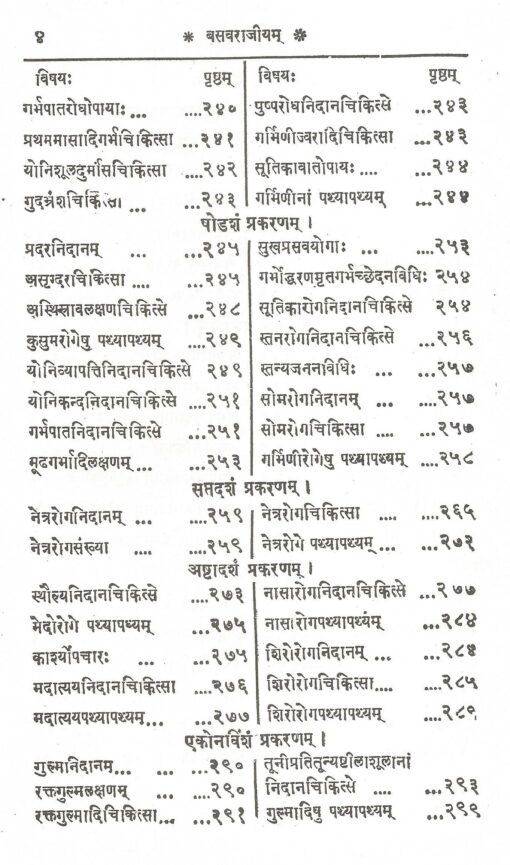 ४ * बसवराजीयम् *
विषयः पृष्ठम्
गर्भपातरोधोपायाः... ...२४०
प्रथममासादिगर्भचिकित्सा ...२४१
योनिशूलदुर्मासचिकित्सा ....२४२
गुदभ्रंशचिकित्सा ... ...२४३
विषयः पृष्ठम्
पुष्परोधनिदानचिकित्से ...२४३
गर्भिणीज्वरादिचिकित्सा ...२४३
सूतिकावातोपायः.... ...२४४
गर्भिणीनां पथ्यापथ्यम् ...२४४
षोडशं प्रकरणम् ।
प्रदरनिदानम् ... ...२४५
असृग्दरचिकित्सा .... ....२४५
अस्थिस्रावलक्षणचिकित्से ...२४८
कुसुमरोगेषु पथ्यापथ्यम् ....२४९
योनिव्यापत्तिनिदानचिकित्से २४९
योनिकन्दनिदानचिकित्से ....२५१
गर्भपातनिदानचिकित्से ...२५१
मूढगर्भादिलक्षणम् ... ....२५३
सुखप्रसवयोगाः ... ....२५३
गर्भोद्धरणमृतगर्भच्छेदनविधिः २५४
सूतिकारोगनिदानचिकित्से २५४
स्तनरोगनिदानचिकित्से ...२५६
स्तन्यजननविधिः ... ...२५७
सोमरोगनिदानम् ... ....२५७
सोमरोगचिकित्सा .... ...२५७
गर्भिणीरोगेषु पथ्यापथ्यम् ....२५८
सप्तदशं प्रकरणम् ।
नेत्ररोगनिदानम् ... ....२५९
नेत्ररोगसंख्या .... ....२५९
नेत्ररोगचिकित्सा .... ....२६५
नेत्ररोगे पथ्यापथ्यम्... ...२७२
अष्टादशं प्रकरणम् ।
स्थौल्यनिदानचिकित्से ....२७३
मेदोरोगे पथ्यापथ्यम् ...२७५
कार्श्योपचारः ... ...२७५
मदात्ययनिदानचिकित्सा ....२७६
मदात्ययपथ्यापथ्यम्... ...२७७
नासारोगनिदानचिकित्से ...२७७
नासारोगपथ्यापथ्यंम् ...२८४
शिरोरोगनिदानम् ... ...२८४
शिरोरोगचिकित्सा.... ....२८५
शिरोरोगपथ्यापथ्यम् ....२८९
एकोनविंशं प्रकरणम् ।
गुल्मनिदानम्... ... ...२९०
रक्तगुल्मलक्षणम् ... ....२९०
रक्तगुल्मादिचिकित्सा... ...२९१
तूनीप्रतितून्यष्टीलाशूलानां
निदानचिकित्से .... ....२९३
गुल्मादिषु पथ्यापथ्यम् ...२९९